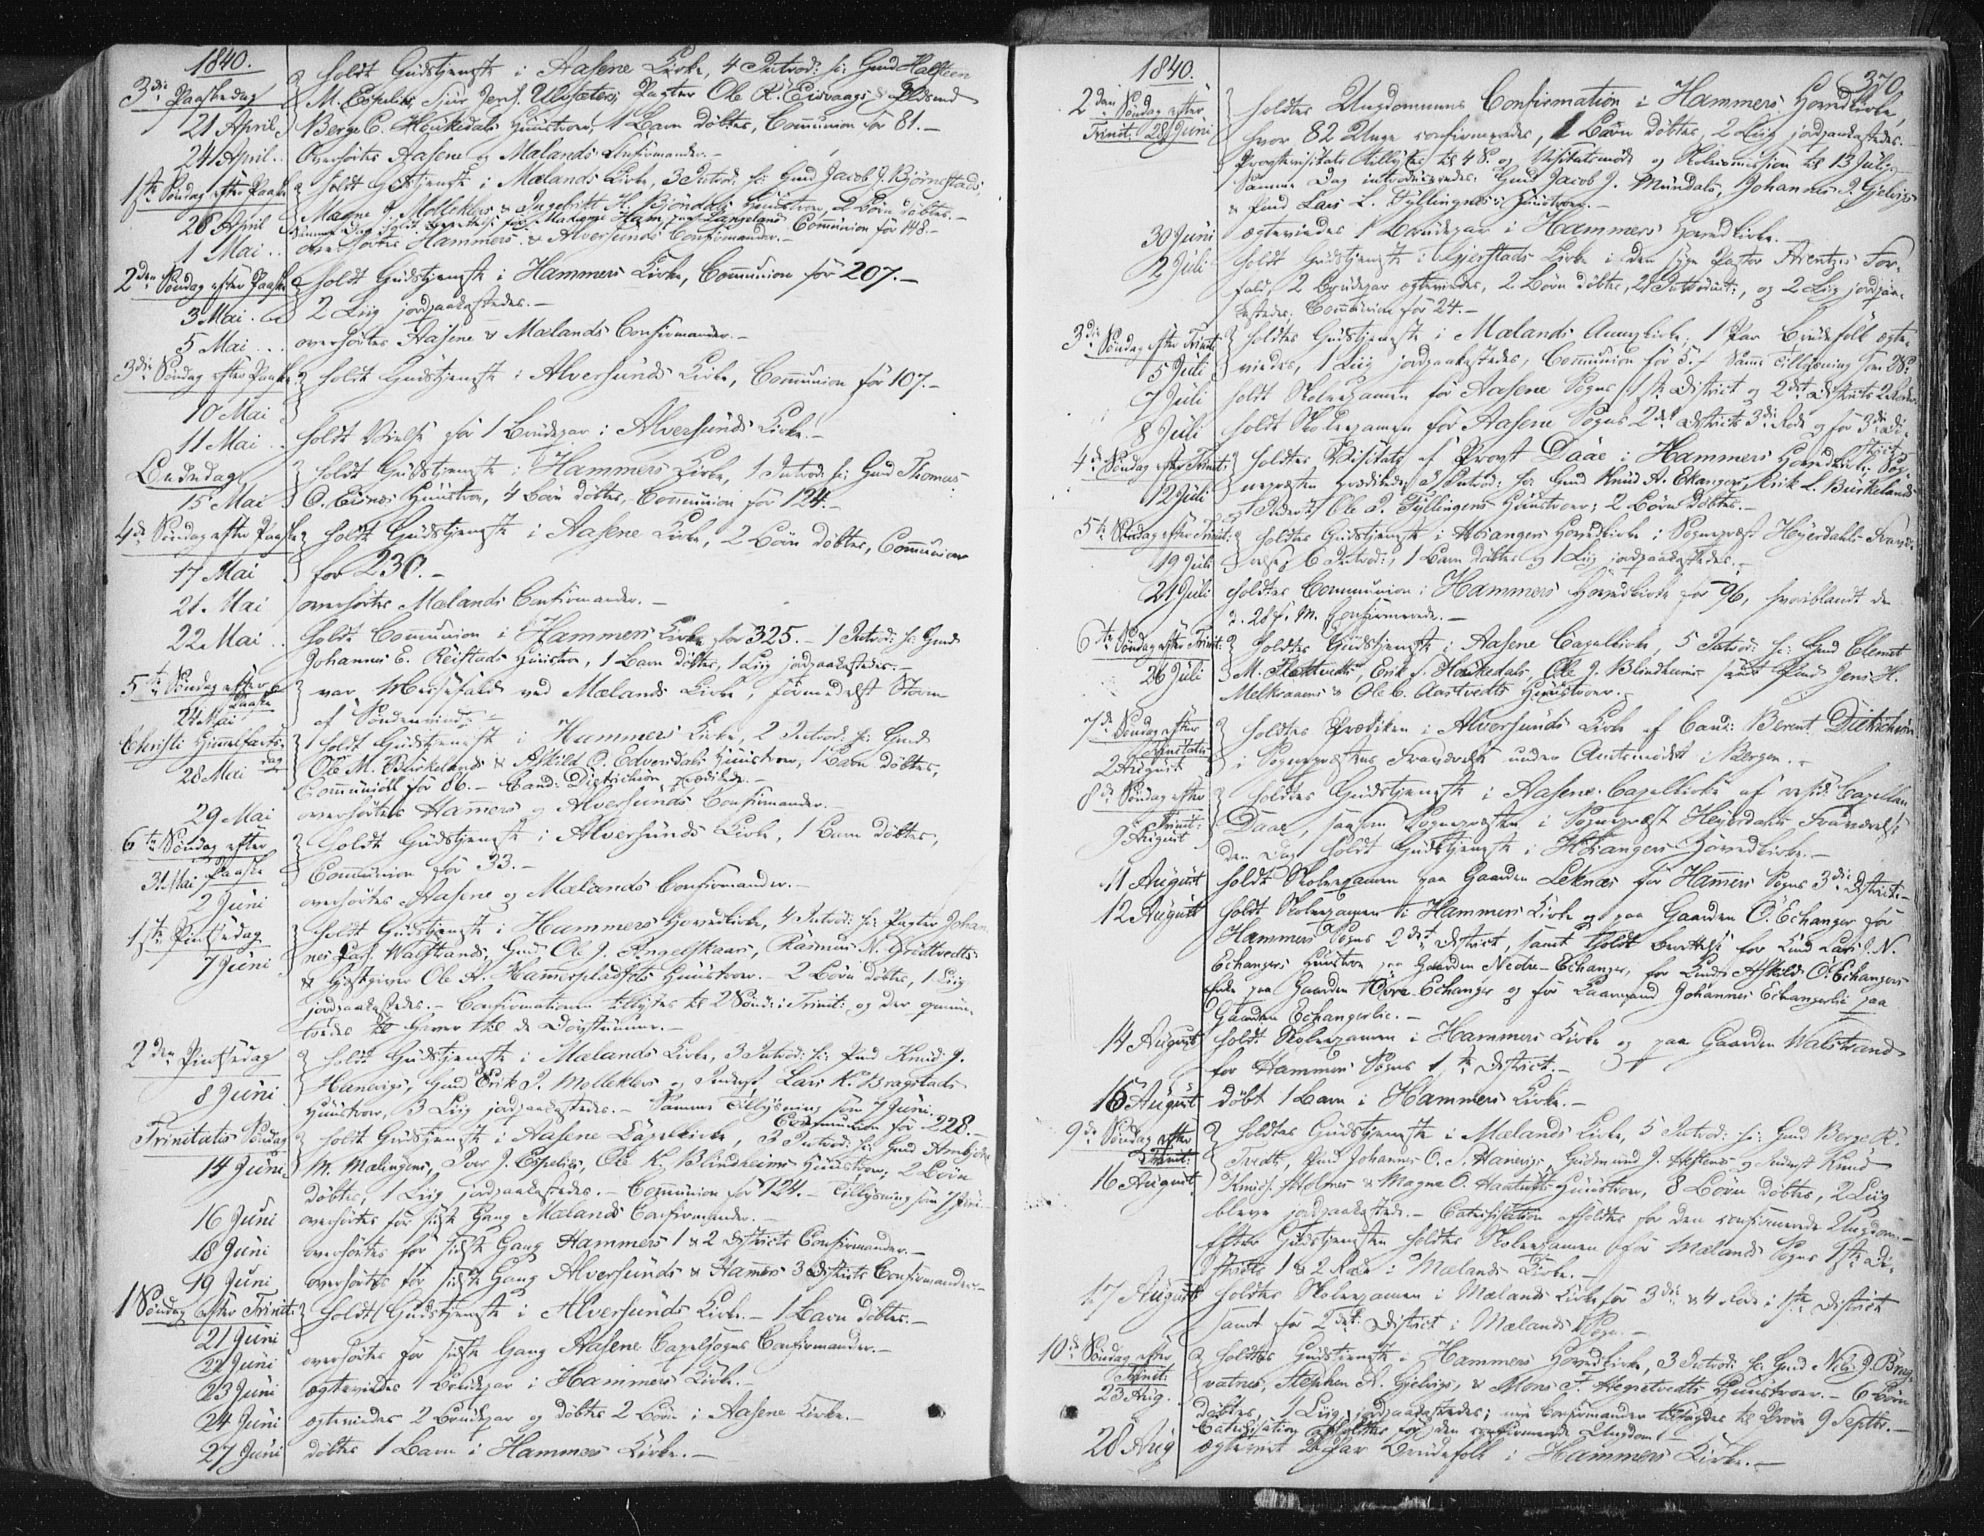 1840.
3die Paaskedag holdt Gudstjeneste i Aasene Kirke, 4 Introd: s: Gmd Halsteen
M. Espelids, Sjur Jens. Ulvsæters, Pagter Ole K. Eisvaags &
21 April Berge C. Høukedals Hustroer, 1 Barn døbtes, Communion for 81.-
24 April.. Overhørtes Aasene og Mælands Confirmander.-
1ste Søndag efter Paaske holdt Gudstjeneste i Mælands Kirke, 3 Introd: s: Gmd Jacob J. Bjørnestads
Magne J. Molleklevs & Ingebritt H. Bjondals Hustroer, 2 Børn døbtes.-
26 April Samme Dag holdt Berettelse for Madame Ham paa Langeland. Communion for 148.-
1 Mai.. overhørtes Hammers & Alversunds Confirmander.-
2den Søndag efter Paaske holdt Gudstjeneste i Hammers Kirke, Communion for 207.-
3 Mai. 2 Liig jordpaakastedes.-
5 Mai.. overhørtes Aasene & Mælands Confirmander.-
3die Søndag efter Paaske holdt Gudstjeneste i Alversunds Kirke, Communion for 107.-
10 Mai
11 Mai.. holdt Vielse for 1 Brudepar i Alversunds Kirke.-
Bededag holdt Gudstjeneste i Hammers Kirke, 1 Introd: s: Gmd Thomas
15 Mai O. Eisnes Hustroe, 4 Børn døbtes, Communion for 124.-
4de Søndag efter Paaske holdt Gudstjeneste i Aasene Kirke, 2 Børn døbtes, Communion
17 Mai for 230.-
21. Mai overhørtes Mælands Confirmander.-
22. Mai.. holdt Communion i Hammers Kirke for 325.- 1 Introd: s: Gmd
Johannes E. Reistads Hustroe, 1 Barn døbtes, 1 Liig jordpaakastedes.-
5te Søndag efter Paaske var Messefald ved Mælands Kirke, formedelst Storm
24 Mai af Søndenvind.-
Christi Himmelfartsdag holdt Gudstjeneste i Hammers Kirke, 2 Introd: s: Gmd
28 Mai Ole M. Buskelands & Askild O. Edvendals Hustroer, 1 Barn døbtes,
Communion for 86.- Cand: Dietrichson prædikede.-
29 Mai overhørtes Hammers og Alversunds Confirmander.-
6te Søndag efter Paaske holdt Gudstjeneste i Alversunds Kirke, 1 Barn døbtes,
31. Mai Communion for 33.-
2 Juni overhørtes Aasene og Mælands Confirmander.-
1ste Pintsedag holdt Gudstjeneste i Hammers Hovedkirke, 4 Introd: s: Pagter Johan-
nes Walstrands, Gmd Ole J. Ringelskaars, Rasmus N. Grøttvedts
7 Juni & Gjæstgiver Ole A. Hammerspladsets Hustroer.- 2 Børn døbtes, 1 Liig
jordpaakastedes.- Confirmationen tillystes til 2 Sønd: i Trinit: og der opmun-
tredes til Gaver til de Døvstumme.-
2den Pintsedag holdt Gudstjeneste i Mælands Kirke, 3 Introd: s: Pmd Knud J.
8 Juni. Hanevigs, Gmd Erik J. Molleklevs og Inderst Lars K. Bragstads
Hustroer, 3 Liig jordpaakastedes.- Samme Tillysning som 7 Juni.
Communion for 228.-
Trinitatis Søndag holdt Gudstjeneste i Aasene Capelkirke, 3 Introd: s: Gmd
14 Juni M. Mælingens, Iver J. Espelids, Ole K. Blindheims Hustroer, 2 Børn
døbtes, 1 Liig jordpaakastedes.- Communion for 124.- Tillysning som 7 Juni.-
16 Juni overhørtes for sidste Gang Mælands Confirmander.-
18 Juni overhørtes for sidste Gang Hammers 1 & 2 Districts Confirmander.-
19 Juni overhørtes for sidste Gang Alversunds & Hamers 3 Districts Confirmander.-
1 Søndag efter Trinit: holdt Gudstjeneste i Alversunds Kirke.- 1 Barn døbtes.-
21 Juni
22 Juni overhørtes for sidste Gang Aasene Capelsogns Confirmander.-
23 Juni ægteviedes 1 Brudepar i Hammers Kirke.-
24 Juni ægteviedes 2 Brudepar og døbtes 2 Børn i Aasene Kirke.-
27 Juni døbtes 1 Barn i Hammers Kirke.-
1840.
370
2den Søndag efter holdtes Ungdommens Confirmation i Hammers Hovedkirke,
Trinit: 28 Juni hvor 82 Unge confirmeredes, 1 Barn døbtes, 2 Liig jordpaakastedes.
Provstevisitats tillystes til 4 S. og Visitatsmøde og Skolecommission til 13 Juli.-
Samme Dag introduceredes Gmd Jacob J. Mundals, Johannes J. Gjelvigs
& Pmd Lars L. Fyllingnes's Hustroer.-
30 Juni ægteviedes 1 Brudepar i Hammers Hovedkirke.-
2 Juli holdt Gudstjeneste i Gjerstads Kirke i den syge Pastor Arentzes For-
fald, 2 Brudepar ægteviedes, 2 Børn døbtes, 2 Introduct:, og 2 Liig jordpaa-
kastedes. Communion for 24.-
3die Søndag efter Trinit: holdtes Gudstjeneste i Mælands Annexkirke, 1 Par Brudefolk ægte-
5 Juli viedes, 1 Liig jordpaakastedes, Communion for 5. Samme Tillysning som 28de
7 Juli holdt Skoleexamen for Aasene Sogns 1ste District og 2det Districts 2 Roder
8 Juli holdt Skoleexamen for Aasene Sogns 2det Districts 3die Rode og for 3die Di-
strict.
4de Søndag efter Trinit: holdtes Visitats af Provst Daae i Hammers Hovedkirke. Sog-
12 Juli nepræsten prædikede, 3 Introd: s: Gmd Knud A. Ekanger, Erik L. Buskelands
og Inderst Ole J. Fyllingens Hustroer; 2 Børn døbtes.-
5te Søndag efter Trinit: holdtes Gudstjeneste i Hosangers Hovedkirke i Sognepræst Heyerdahls Fravæ-
19 Juli relse, 6 Introd:, 1 Barn døbtes og 1 Liig jordpaakastedes.-
24 Juli holdtes Communion i Hammers Hovedkirke for 96, hvoriblandt de
d. 28 f. M. Confirmerede.-
6te Søndag efter Trinit: holdtes Gudstjeneste i Aasene Capelkirke, 5 Introd: s: Gmd Clemet
26 Juli M. Slettvedts, Erik J. Houkedals, Ole J. Blindheims samt Pmd Jens H.
Melkraaens & Ole C. Aastvedts Hustroer.-
7de Søndag efter Trinitatis holdtes Prædiken i Alversunds Kirke af Cand: Berent Dietrichson
2 August i Sognepræstens Fraværelse under Amtsmødet i Bergen.-
8de Søndag efter Trinit: holdtes Gudstjeneste i Aasene Capelkirke af resid: Capellan
9 August Daae, saasom Sognepræsten i Sognepræst Heyerdahls Fraværelse
den Dag holdt Gudstjeneste i Hosangers Hovedkirke.-
11 August holdt Skoleexamen paa Gaarden Leknæs for Hamers Sogns 3die District.-
12 August holdt Skoleexamen i Hammers Kirke og paa Gaarden Ö. Echanger for
Hammers Sogns 2det District, samt holdt Berettelse for Gmd Lars N.
Echangers Hustroe paa Gaarden Nedre-Echanger, for Gmd Askild O. Echangers
Enke paa Gaarden Övre Echanger og for Kaarmand Johannes Echangerlie paa
Gaarden Echangerlie.-
14 August holdt Skoleexamen i Hammers Kirke og paa Gaarden Walstrand
for Hammers Sogns 1ste District.-
15 August døbt 1 Barn i Hammers Kirke.-
9de Søndag efter Trinit: holdtes Gudstjeneste i Mælands Kirke, 5 Introd: s: Gmd Berge K.
16 August Tvedt, Pmd Johannes O. S. Hanevigs, Gudmund J. Heftens og Inderst Knud
Knuds. Holmes & Magne O. Haatvets Hustroer, 8 Børn døbtes, 2 Liig
bleve jordpaakastede.- Catechisation afholdtes for den confirmerede Ungdom.-
Efter Gudstjenesten holdtes Skoleexamen for Mælands Sogns 1ste Di-
stricts 1 & 2 Rode i Mælands Kirke.-
17 August holdtes Skoleexamen i Mælands Kirke for 3die & 4 Rode i 1ste District
samt for 2det District i Mælands Sogn.-
10de Søndag efter Trinit: holdtes Gudstjeneste i Hammers Hovedkirke, 3 Introd: s: Gmd Nils J. Breg-
23 Aug. vatnes, Stephen A. Gjelvigs, & Mons T. Hopstvedts Hustroer.- 6 Børn
døbtes, 1 Liig jordpaakastedes; nye Confirmander tilsagdes til Prøve 9 Septbr.-
Catechisation afholdtes for den confirmerede Ungdom.
28 Aug ægteviet 2 Par Brudefolk i Hammers Kirke.-